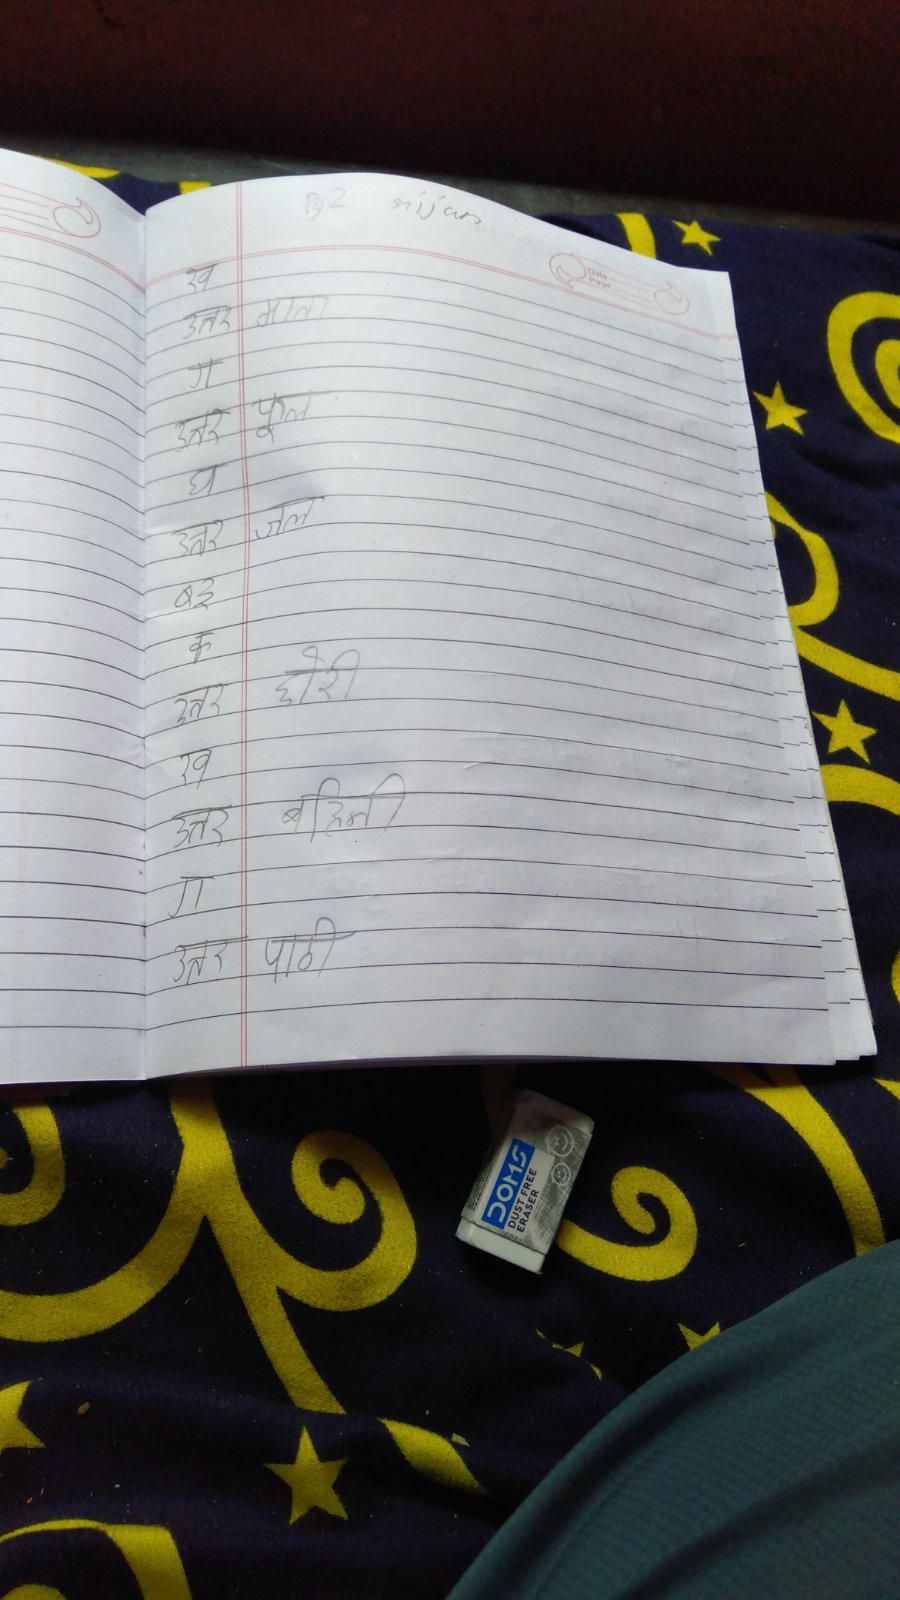 Pg 2
Date
Page
ख
उत्तर माता
ग
उत्तर फूल
घ
उत्तर जल
बइ
क
उत्तर छोरी
ख
उत्तर बहिनी
ग
उत्तर पाठी
DOMS
DUST FREE
ERASER